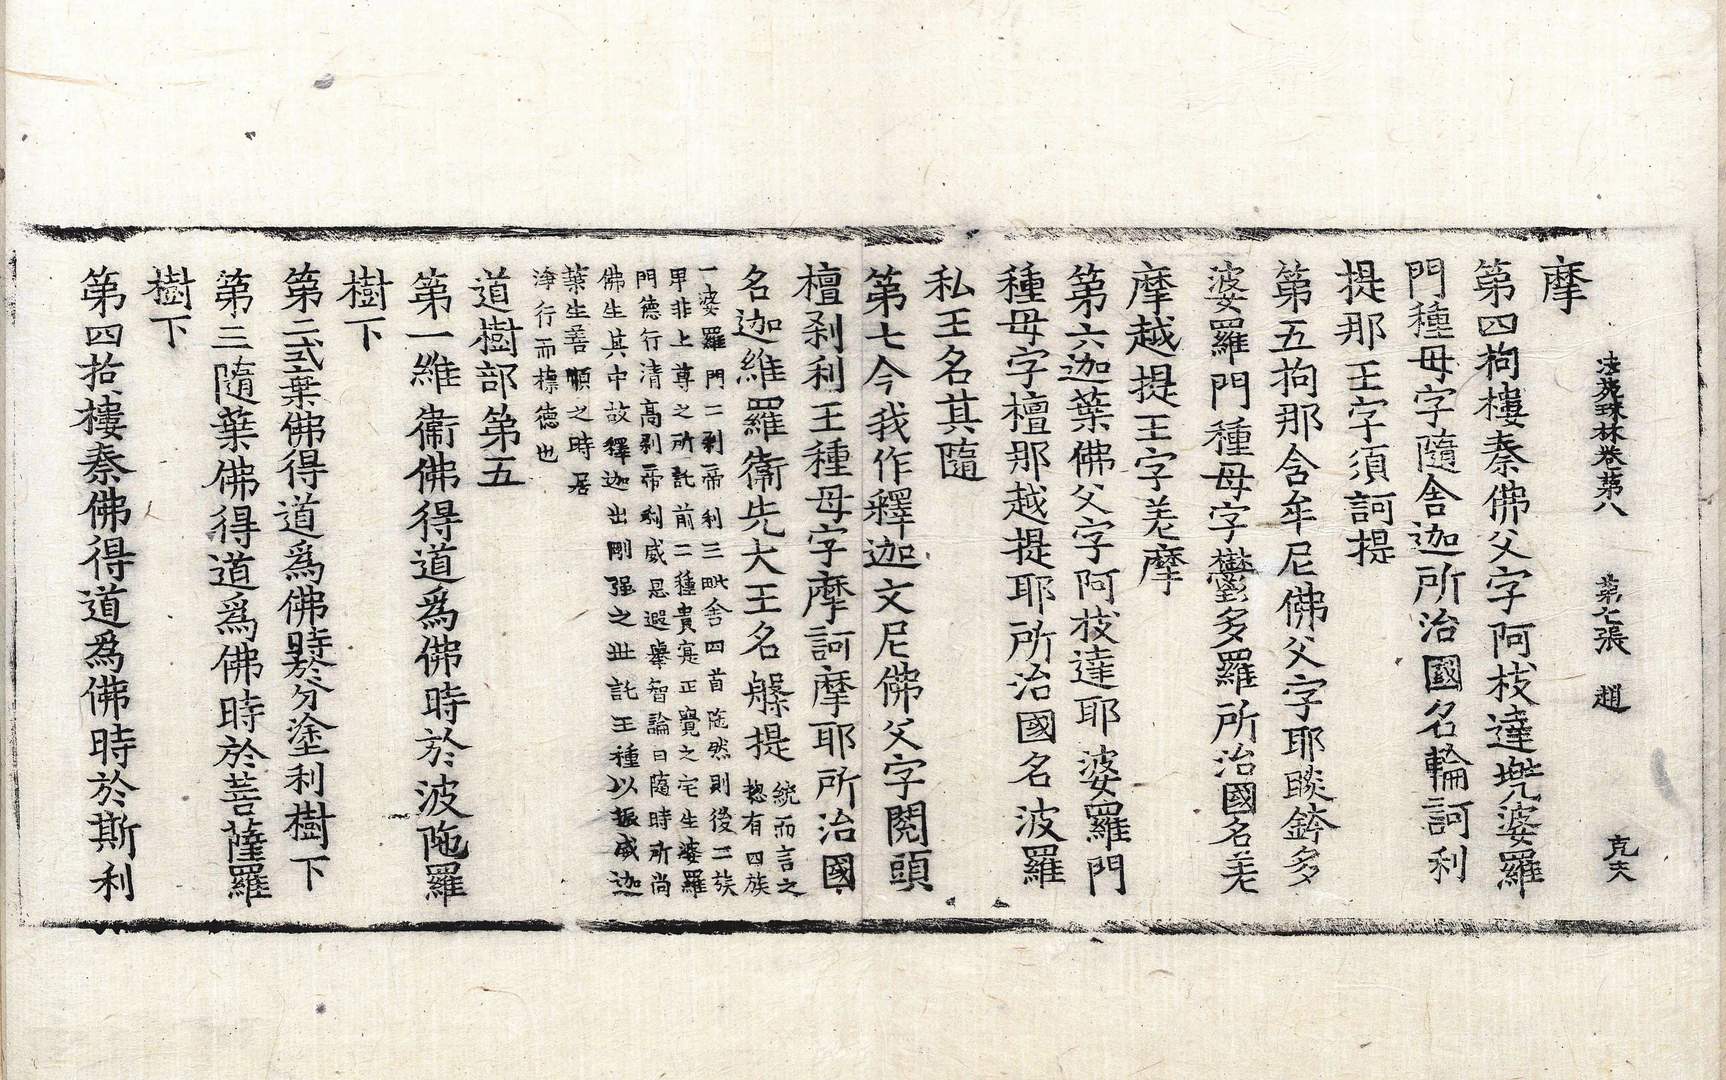 法苑珠林卷第八　第七張　趙　克夫
摩
第四拘樓秦佛父字阿枝達兠婆羅
門種母字隨舍迦所治國名輪訶利
提那王字須訶提
第五拘那含牟尼佛父字耶睒鉾多
婆羅門種母字鬱多羅所治國名羌
摩越提王字羌摩
第六迦葉佛父字阿枝達耶婆羅門
種母字檀那越提耶所治國名波羅
私王名其隨
第七今我作釋迦文尼佛父字閱頭
檀剎利王種母字摩訶摩耶所治國
名迦維羅衞先大王名槃提
統而言之
揔有四族
一婆羅門二剎帝利三毗舍四首陁然則後二族
卑非上尊之所託前二種貴寔正覺之宅生婆羅
門德行清高剎帝利威恩遐舉智論曰隨時所尚
佛生其中故釋迦出剛强之世託王種以振威迦
葉生善順之時居
淨行而標德也
道樹部第五
第一維衞佛得道爲佛時於波陁羅
樹下
第二式棄佛得道爲佛時於分塗利樹下
第三隨葉佛得道爲佛時於菩薩羅
樹下
第四拘樓秦佛得道爲佛時於斯利